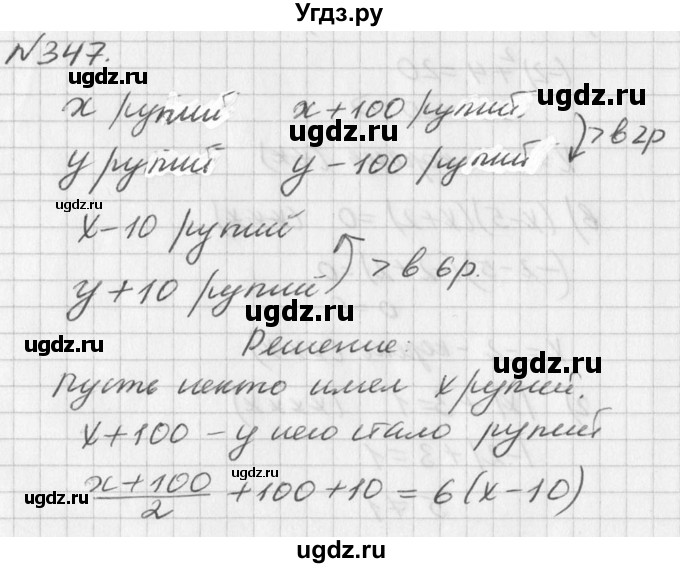 Угдз.ру
N347.
ugdz.ru
ugdz.ru
x рупий x+100 рупий
ugdz.ru
> в 2р
y рупий y-100 рупий
ugdz.ru
ugdz.ru
x-10 рупий
> в 6р.
y+10 рупий
ugdz.ru
ugdz.ru
Решение:
ugdz.ru
Пусть некто имел x рупий.
x+100 - у него стало рупий
ugdz.ru
x+100/2 +100+10=6(x-10)
ugdz.ru
ugdz.ru
ugdz.ru